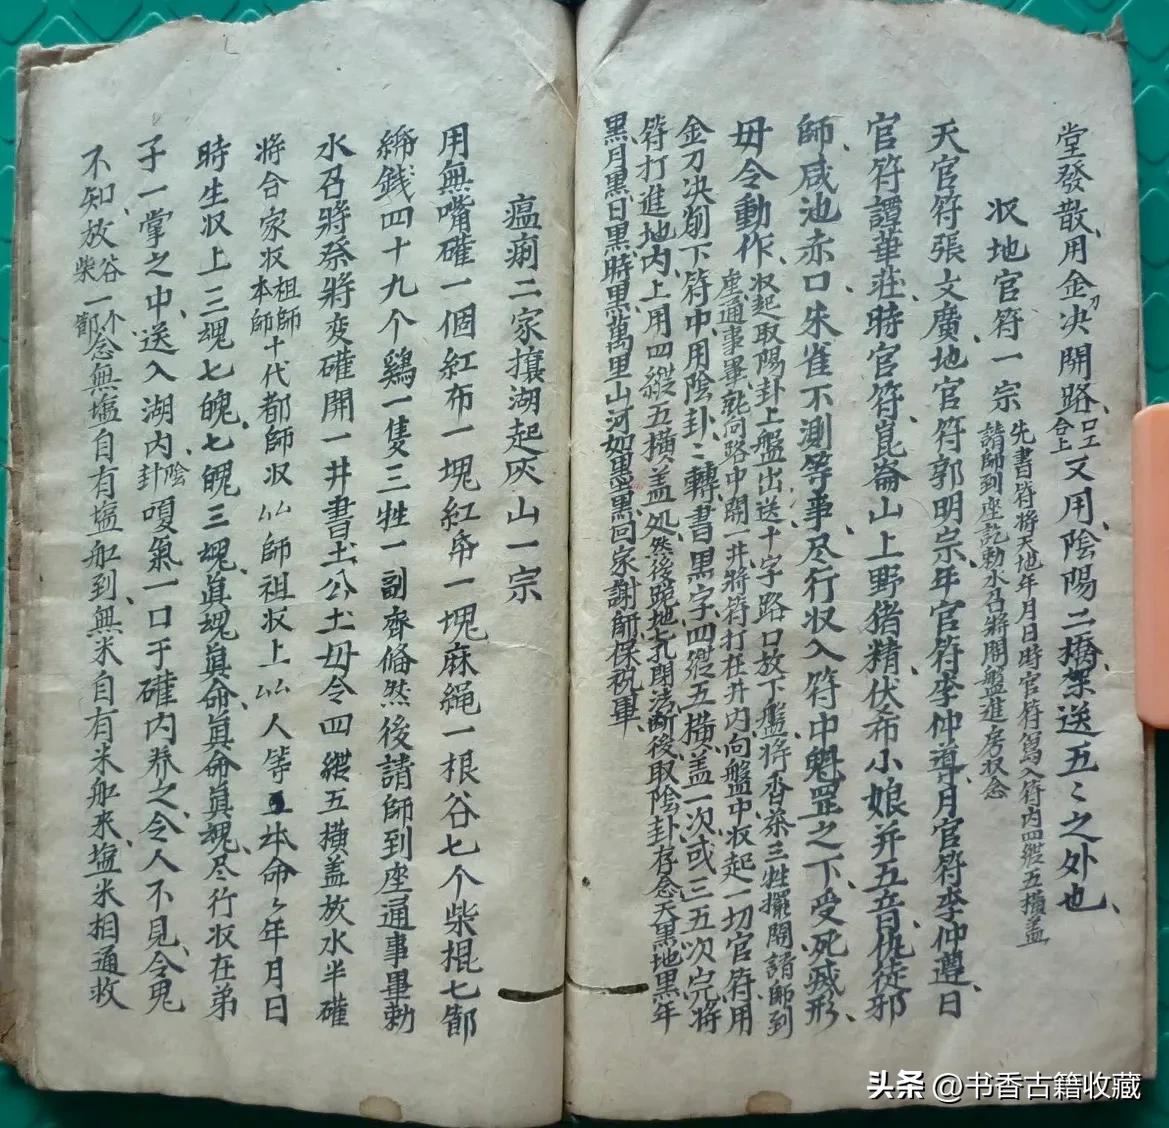 堂發散用金刀决開路口工合上又用陰陽二橋架送五〻之外也、
收地官符一宗先書符將天地年月日時官符寫入符内四縱五橫盖請師到座訖勅水召將開盤進房收念
天官符張文廣、地官符郭明宗、年官符李仲道、月官符李仲遵、日
官符譚華莊、時官符、崑崙山上野猪精、伏布小娘并五音仇徒邪
師、咸池、赤口、朱雀、不測等事、尽行収入符中魁罡之下、受死㓕形、
毋令動作、収起取陽卦上盤出送十字路口放下盤、將香茶三牲擺開請師到座通事畢、就向路中開一井將符打在井内、向盤中收起一切官符、用
金刀决剮下符中、用陰卦〻轉、書黑字、四縱五橫盖一次、或三五次完、將
符打進地内、上用四縱五橫盖処、然後跪地九閉法断後取陰卦存念天黑地黑年
黑月黑日黑時黑萬里山河如墨黑回家謝師保祝畢、
瘟痢二家攘湖起灰山一宗
用無嘴礶一個紅布一塊紅帋一塊麻繩一根谷七个柴棍七節
綿錢四十九个鷄一隻三牲一副齊俻然後請師到座通事畢勅
水召將祭將変礶開一井書土公土母令四縱五橫盖放水半礶
將合家収祖師本師十代都師収厶厶師祖収上厶厶人等五本命〻年月日
時生収上三魂七魄、七魄三魂、真魂真命真命真魂、尽行収在弟
子一掌之中、送入湖内陰卦嗄氣一口于礶内养之、令人不見、令鬼
不知、放谷一个柴一節念無塩自有塩船到、無米自有米船來、塩米相通救
头条 @书香古籍收藏